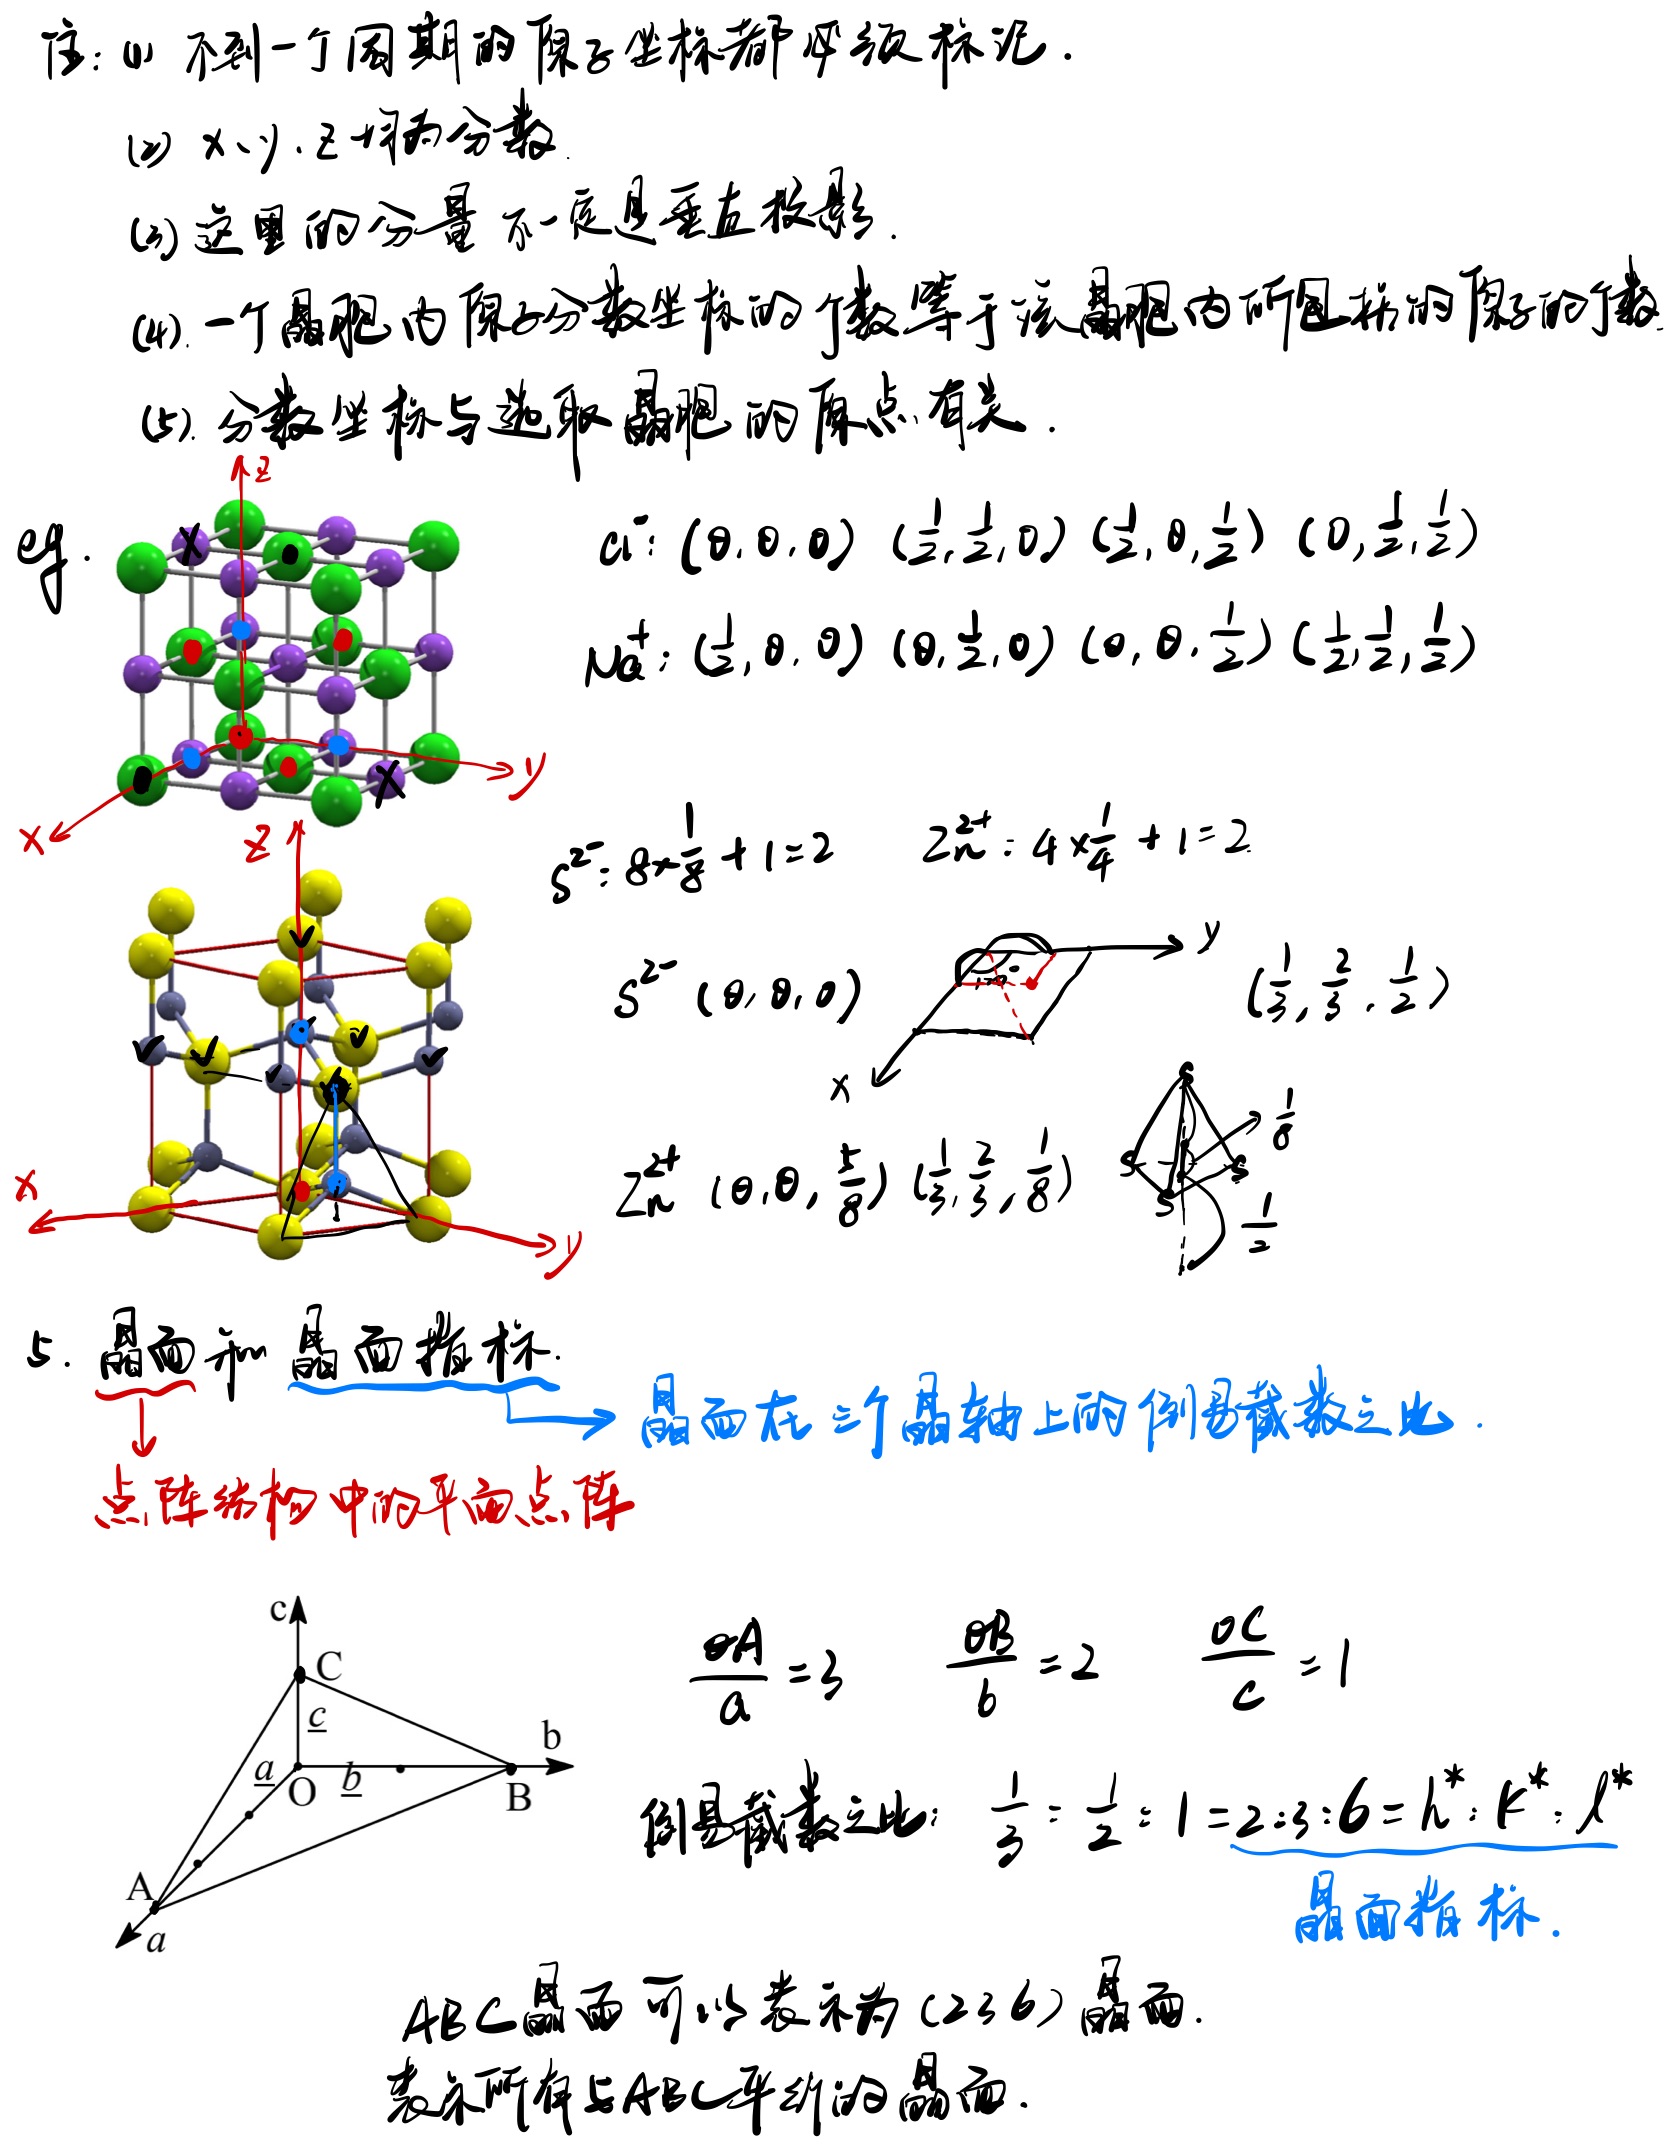 注: (1) 不到一个周期的原子坐标都必须标记.
(2) x、y、z 均为分数.
(3) 这里的分量不一定是垂直投影.
(4). 一个晶胞内原子分数坐标的个数等于该晶胞内所包括的原子的个数.
(5). 分数坐标与选取晶胞的原点有关.
eg.
z
x
y
Cl⁻: (0,0,0) (1/2,1/2,0) (1/2,0,1/2) (0,1/2,1/2)
Na⁺: (1/2,0,0) (0,1/2,0) (0,0,1/2) (1/2,1/2,1/2)
z
x
y
S²⁻: 8×1/8+1=2 Zn²⁺: 4×1/4+1=2
S²⁻ (0,0,0)
y
x
120°
(1/3,2/3,1/2)
Zn²⁺ (0,0,5/8) (1/3,2/3,1/8)
S
S
S
S
1/8
1/2
5. 晶面和晶面指标.
晶面在三个晶轴上的倒易截数之比.
点阵结构中的平面点阵
c
C
c
a
O
b
b
B
A
a
OA/a=3 OB/b=2 OC/c=1
倒易截数之比: 1/3:1/2:1=2:3:6=h*:k*:l*
晶面指标.
ABC晶面可以表示为(236)晶面.
表示所有与ABC平行的晶面.